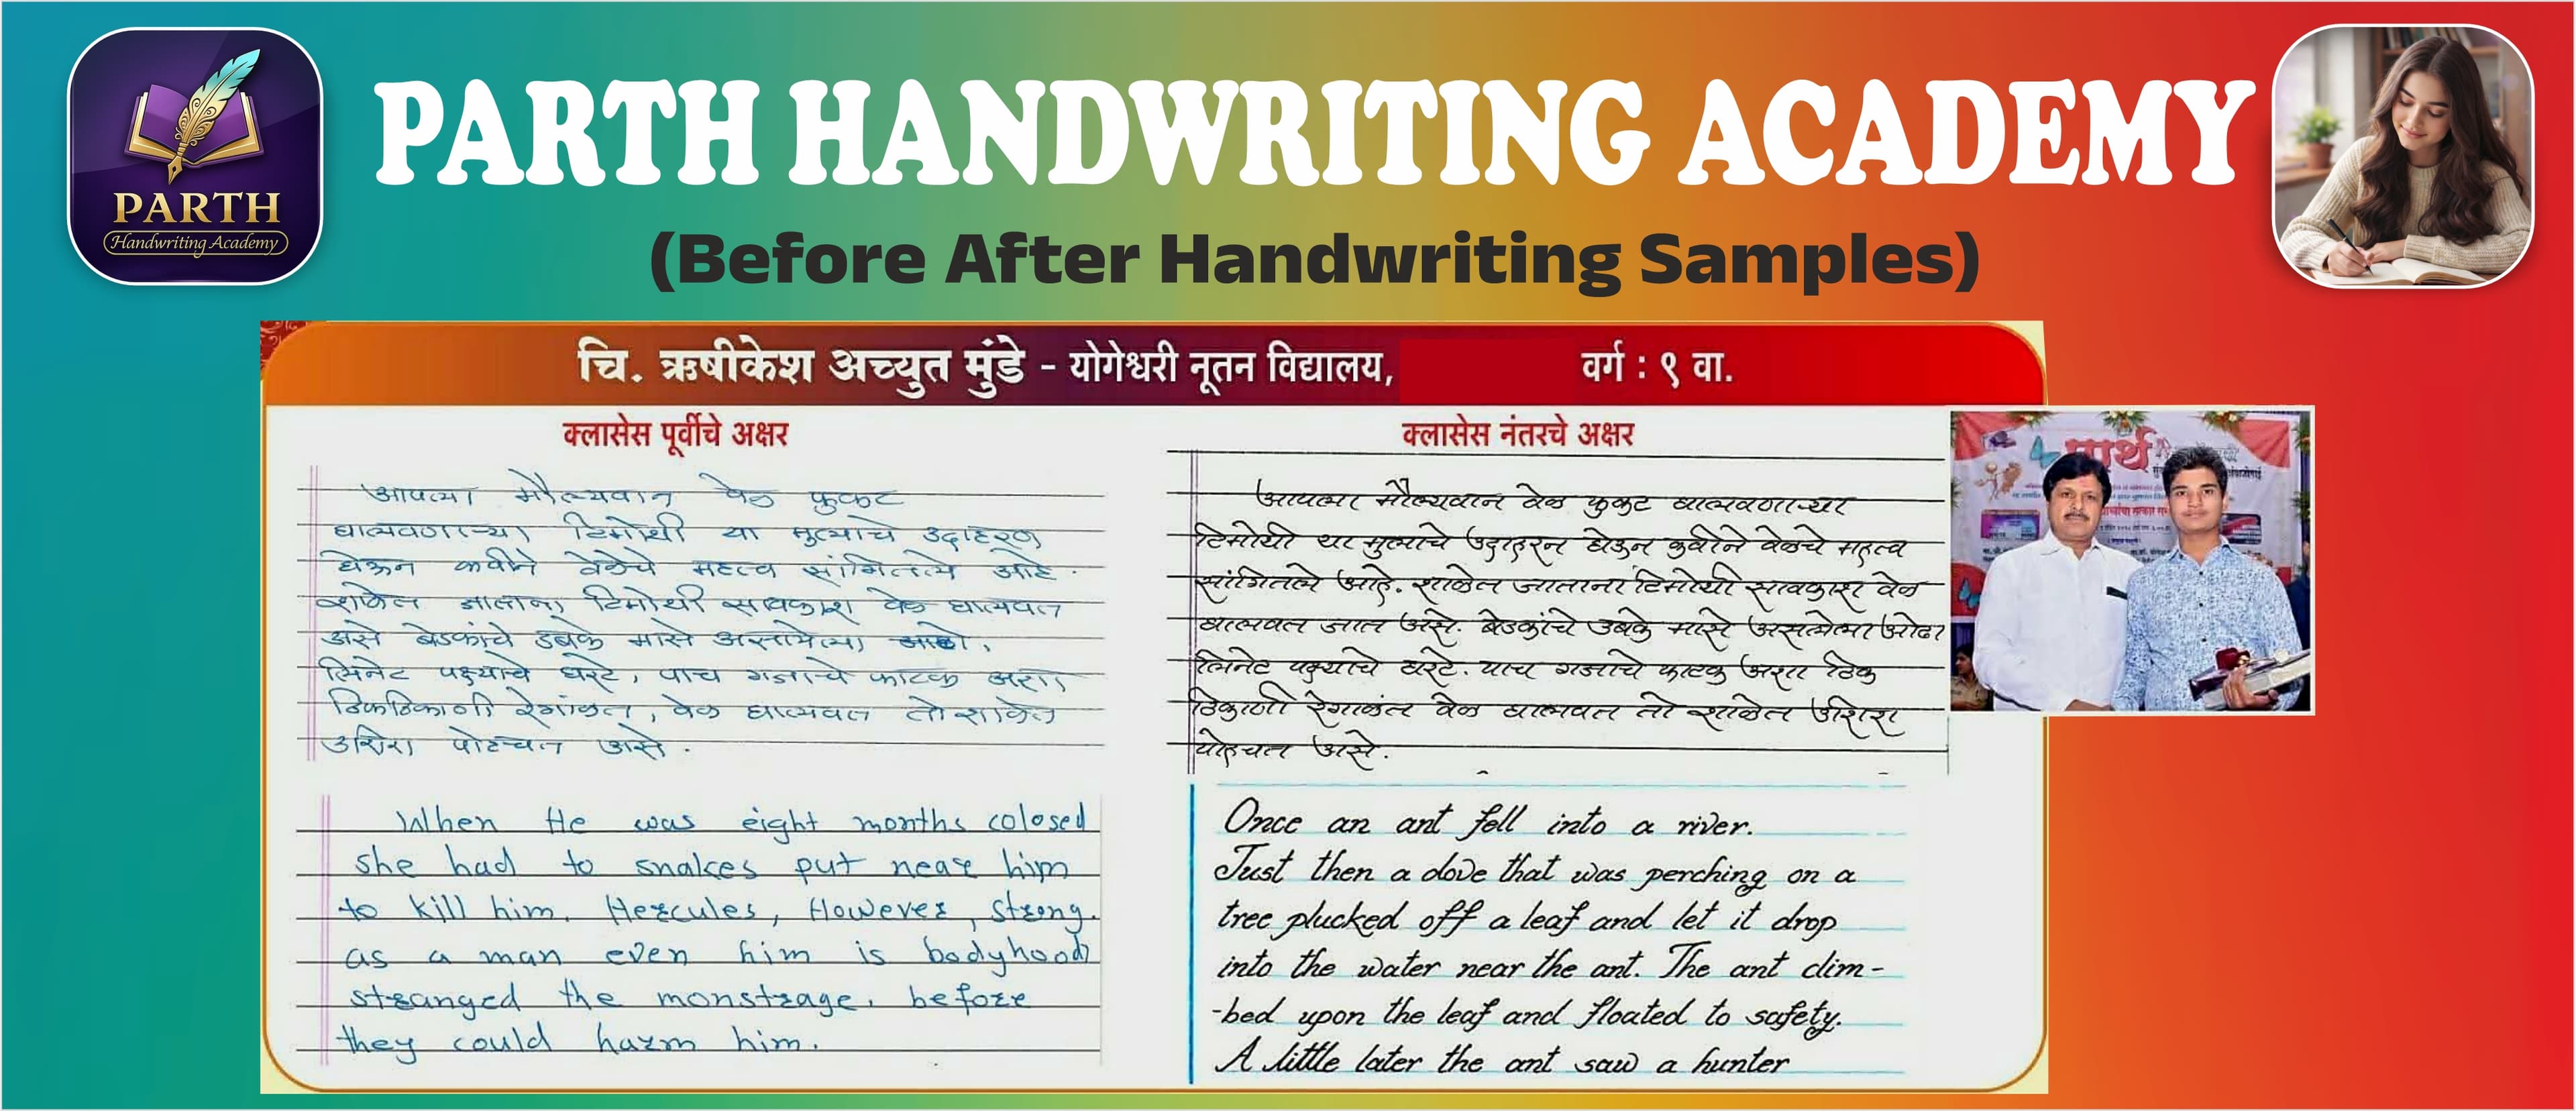 PARTH
Handwriting Academy
PARTH HANDWRITING ACADEMY
(Before After Handwriting Samples)
चि. ऋषीकेश अच्युत मुंडे - योगेश्वरी नूतन विद्यालय, वर्ग : ९ वा.
क्लासेस पूर्वीचे अक्षर
आपल्या मौल्यवान वेळ फुकट
घालवणाऱ्या टिमोथी या मुलाचे उदाहरण
घेऊन कवीने वेळेचे महत्व सांगितले आहे.
शाळेत जाताना टिमोथी सावकाश वेळ घालवत
असे बेडकांचे डबके मासे असलेल्या
लिनेट पक्ष्याचे घरटे, पाच गजाचे फाटक अशा
ठिकठिकाणी रेंगाळत, वेळ घालवत तो शाळेत
उशिरा पोहचत असे.
When He was eight months colosed
she had to snakes put near him
to kill him. Hercules, However, strong.
as a man even him is badyhood
stranged the monstrage. before
they could harm him.
क्लासेस नंतरचे अक्षर
आपला मौल्यवान वेळ फुकट घालवणाऱ्या
टिमोथी या मुलाचे उदाहरन घेऊन कवीने वेळचे महत्व
सांगितले आहे. शाळेत जाताना टिमोथी सावकाश वेळ
घालवत जात असे. बेडकांचे डबके मासे असलेला ओढा
लिनेट पक्ष्याचे घरटे. पाच गजाचे फाटक अशा ठिक
ठिकाणी रेंगाळत वेळ घालवत तो शाळेत उशिरा
पोहचत असे.
Once an ant fell into a river.
Just then a dove that was perching on a
tree plucked off a leaf and let it drop
into the water near the ant. The ant clim-
-bed upon the leaf and floated to safety.
A little later the ant saw a hunter
पार्थ